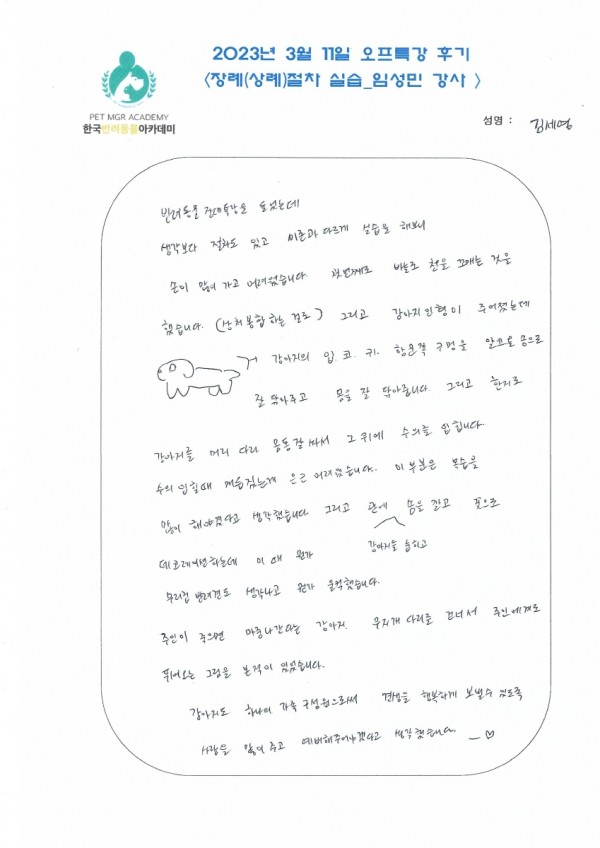 2023년 3월 11일 오프특강 후기
<장례(상례)절차 실습_임성민 강사 >
PET MGR ACADEMY
한국반려동물아카데미
성명 : 김세영
반려동물 장례특강을 들었는데
생각보다 절차도 있고 이론과 다르게 실습을 해보니
손이 많이 가고 어려웠습니다. 첫번째로 바늘로 천을 꼬매는 것을
했습니다. (상처봉합하는 걸로) 그리고 강아지인형이 주어졌는데
강아지의 입. 코. 귀. 항문쪽 구멍을 알코올 솜으로
잘 닦아주고 몸을 잘 닦아줍니다. 그리고 한지로
강아지를 머리 다리 몸통 잘 싸서 그 위에 수의를 입힙니다.
수의 입힐때 매듭짓는게 은근 어려웠습니다. 이 부분은 복습을
많이 해야겠다고 생각했습니다. 그리고 관에 솜을 깔고 꽃으로
강아지를 눕히고
데코레이션하는데 이 때 뭔가
우리집 반려견도 생각나고 뭔가 울컥했습니다.
주인이 죽으면 마중나간다는 강아지. 무지개 다리를 건너서 주인에게로
뛰어오는 그림을 본적이 있었습니다.
강아지도 하나의 가족 구성원으로써 견생을 행복하게 보낼수 있도록
사랑을 많이 주고 예뻐해주어야겠다고 생각했습니다.